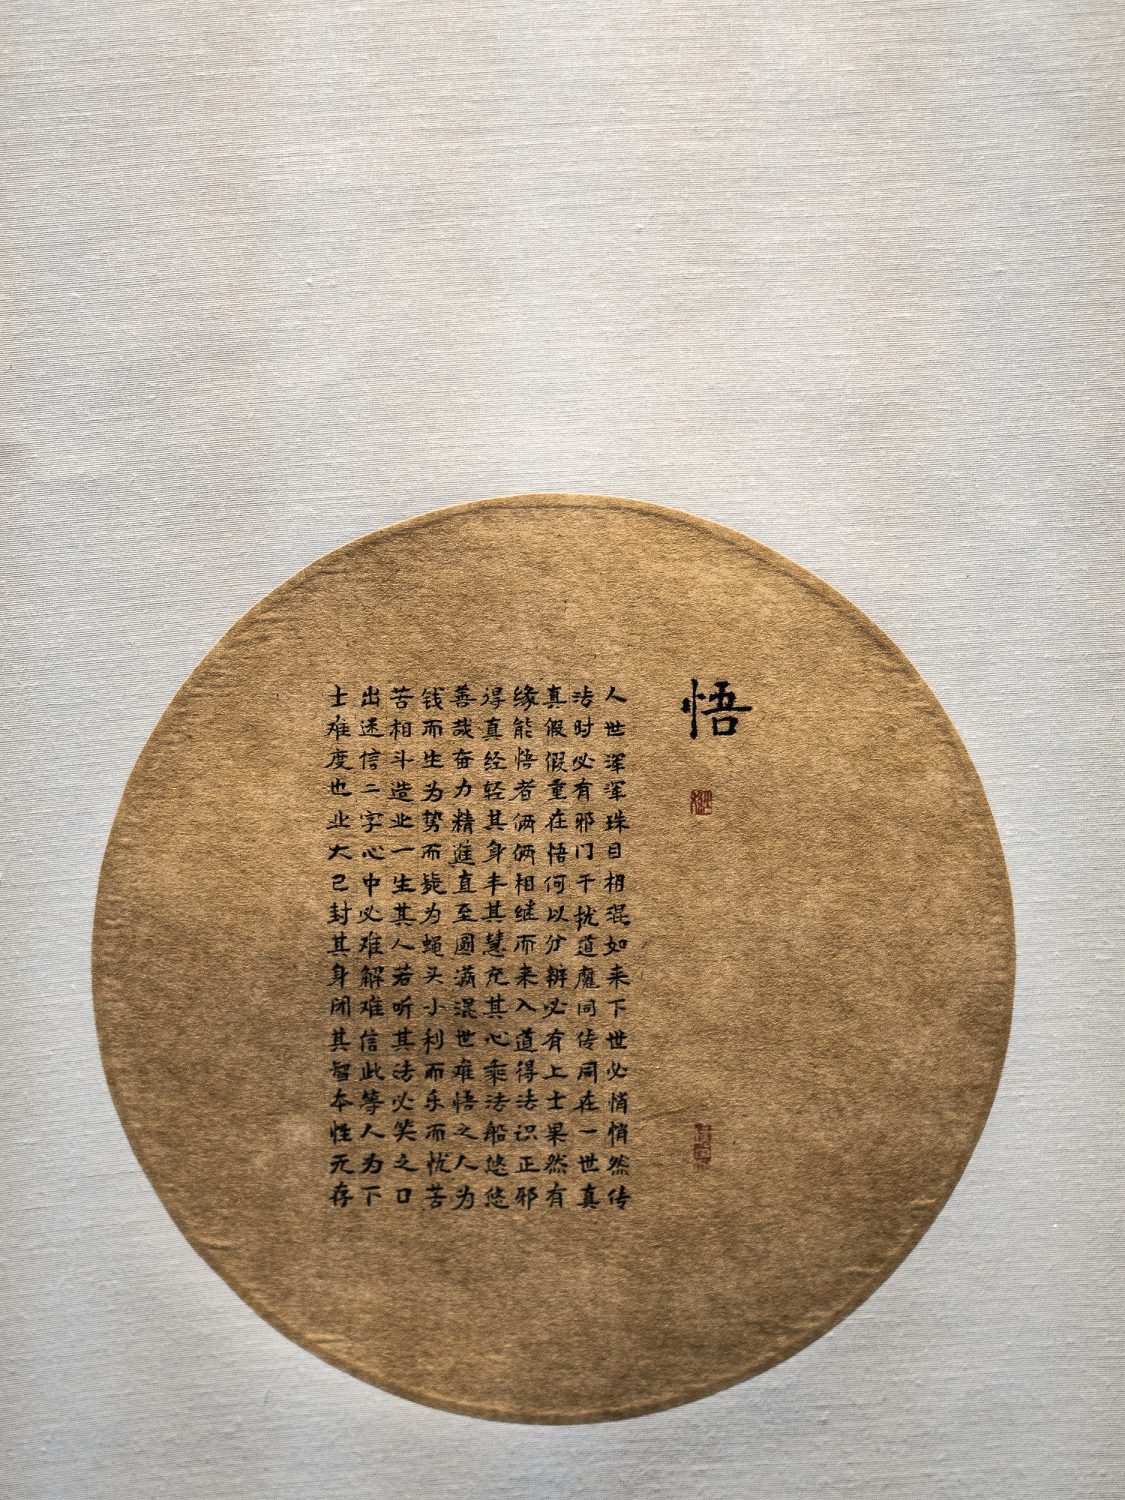 悟
人世浑浑珠目相混如来下世必悄悄然传
法时必有邪门干扰道魔同传同在一世真
真假假重在悟何以分辨必有上士果然有
缘能悟者俩俩相继而来入道得法识正邪
得真经轻其身丰其慧充其心乘法船悠悠
善哉奋力精進直至圆满混世难悟之人为
钱而生为势而毙为蝇头小利而乐而忧苦
苦相斗造业一生其人若听其法必笑之口
出迷信二字心中必难解难信此等人为下
士难度也业大已封其身闭其智本性无存